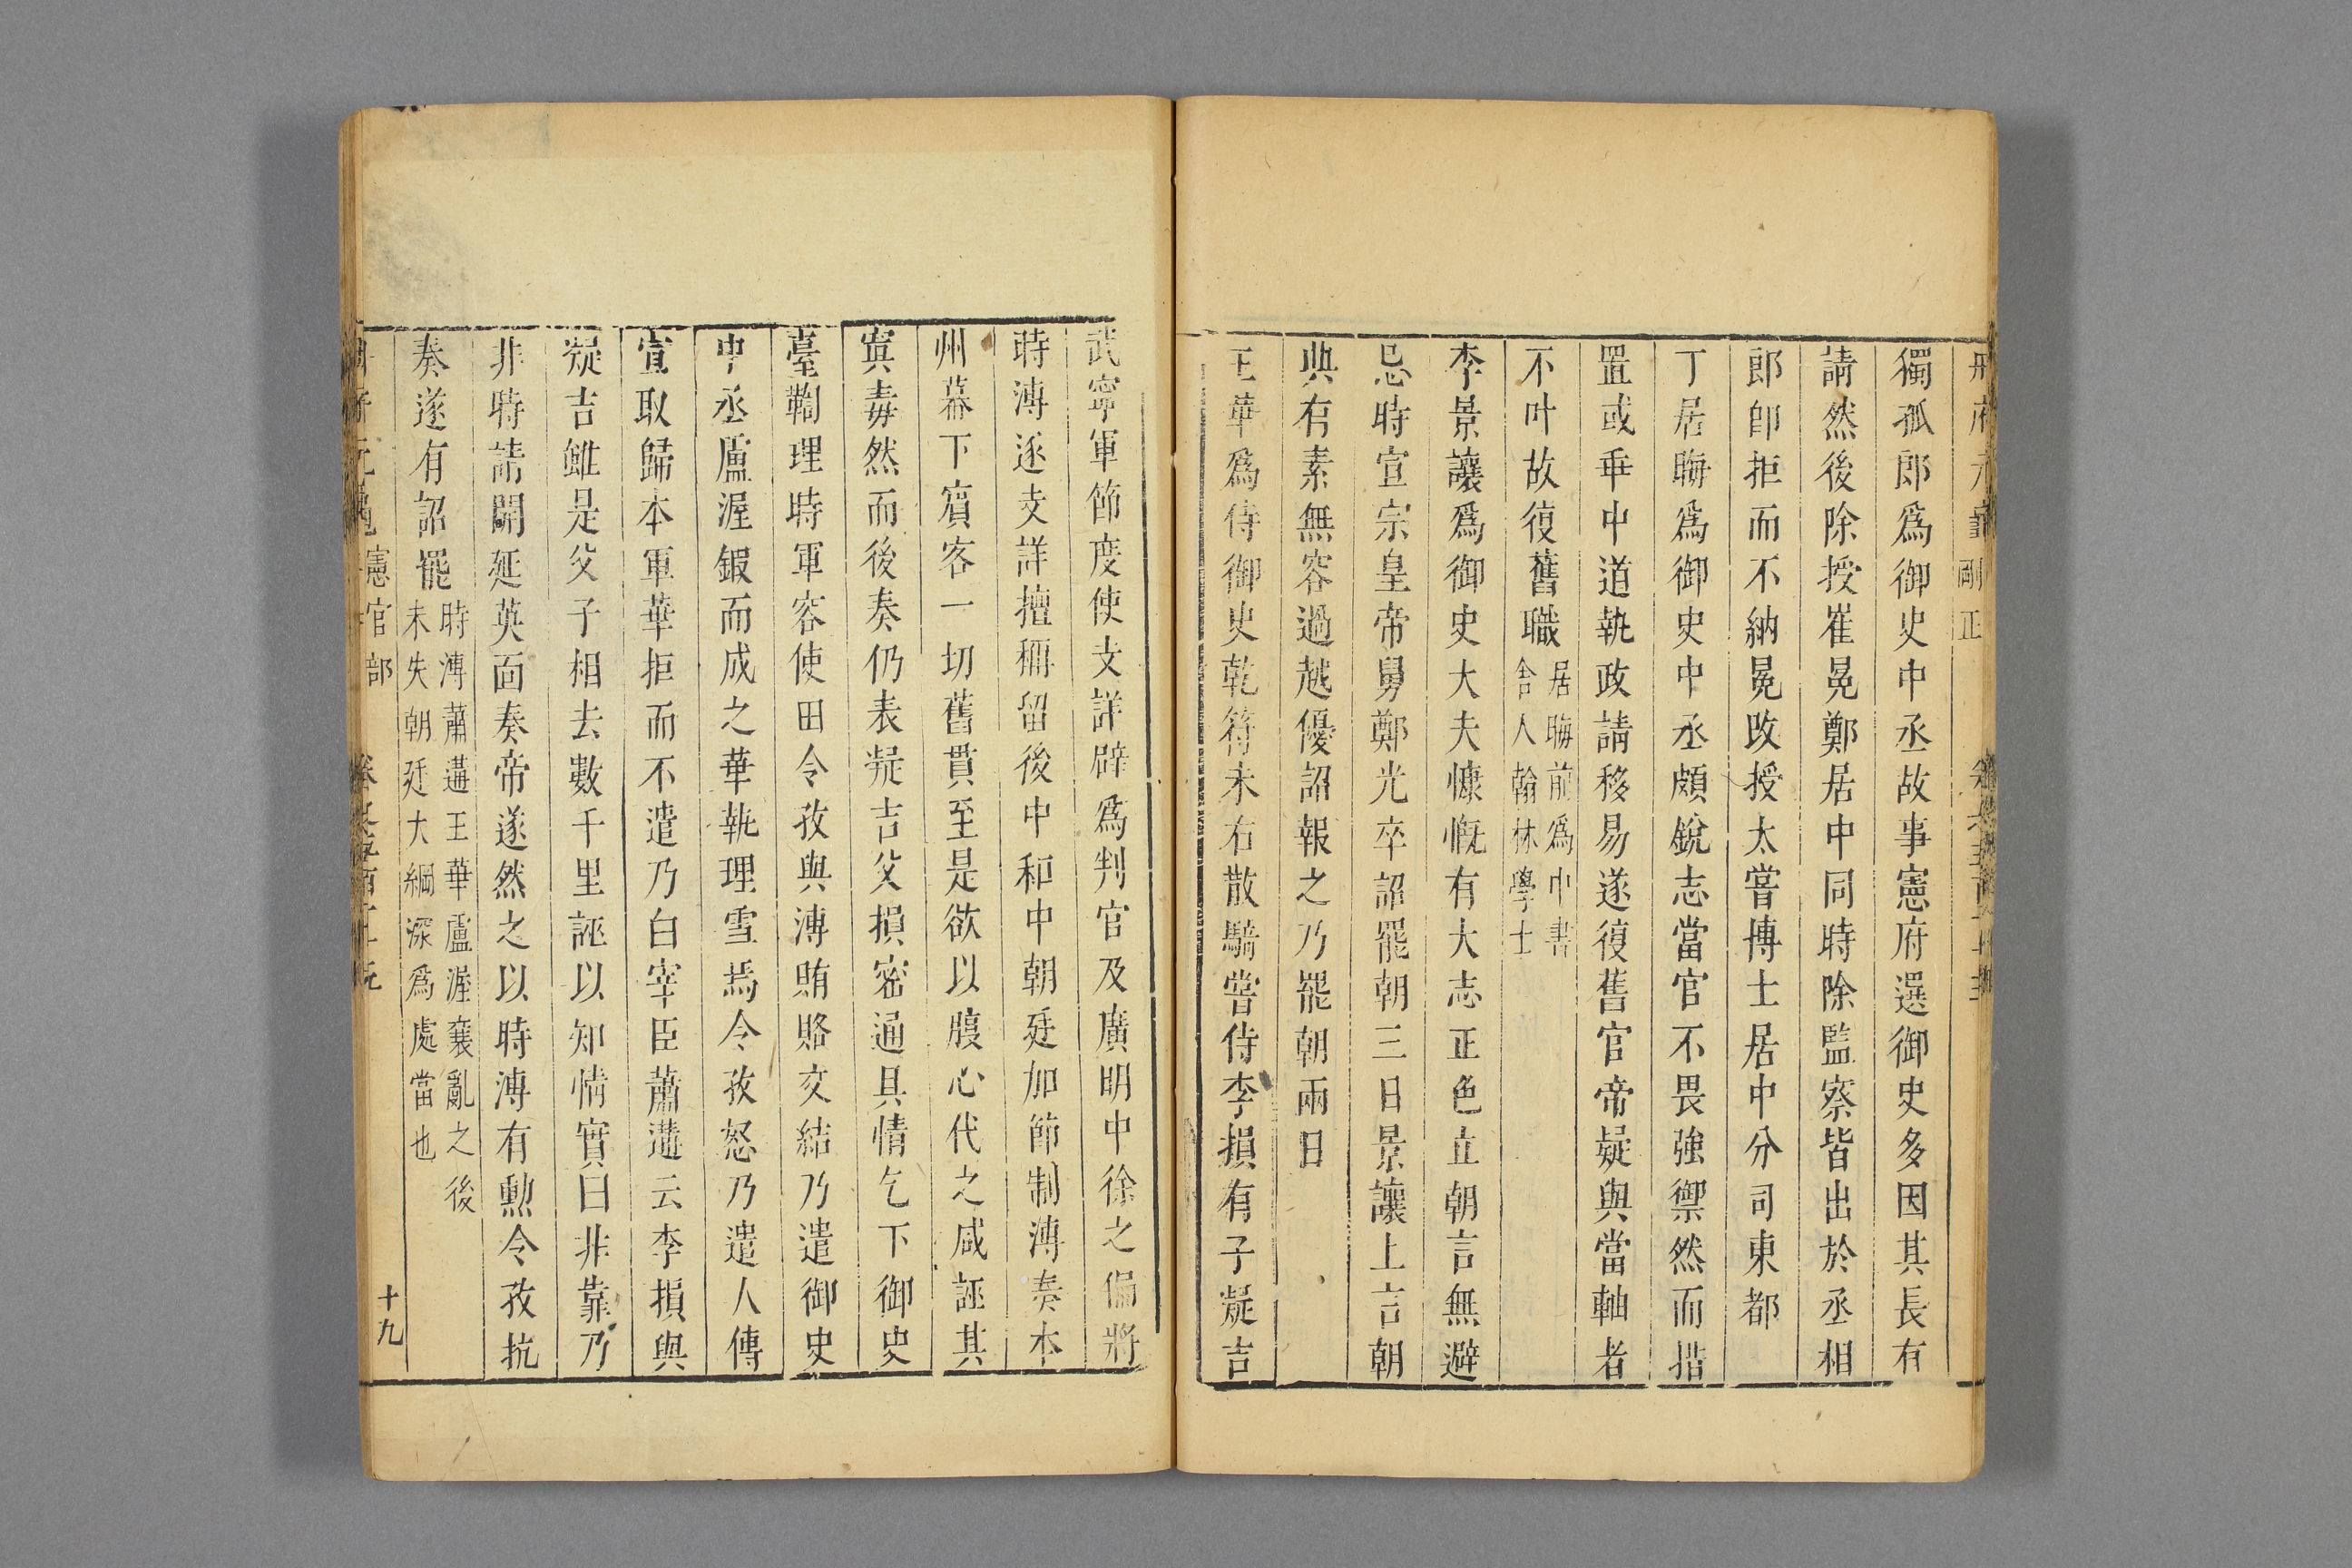 冊府元龜 剛正
獨孤郎爲御史中丞故事憲府選御史多因其長有
請然後除授崔晃鄭居中同時除監察皆出於丞相
郎卽拒而不納晃改授太嘗博士居中分司東都
丁居晦爲御史中丞頗銳志當官不畏強禦然而措
置或乖中道執政請移易遂復舊官帝疑與當軸者
不叶故復舊職
居晦前爲中書
舍人翰林學士
李景讓爲御史大夫慷慨有大志正色立朝言無避
忌時宣宗皇帝舅鄭光卒詔罷朝三日景讓上言朝
典有素無容過越優詔報之乃罷朝兩日
王華爲侍御史乾符末右散騎嘗侍李損有子凝吉
武寧軍節度使支詳辟爲判官及廣明中徐之偏將
時溥逐支詳擅稱留後中和中朝廷加節制溥奏本
州幕下賔客一切舊貫至是欲以腹心代之咸誣其
寘毒然而後奏仍表凝吉父損密通其情乞下御史
臺鞫理時軍容使田令孜與溥賄賂交結乃遣御史
中丞盧渥鍜而成之華執理雪焉令孜怒乃遣人傳
宣取歸本軍華拒而不遣乃白宰臣蕭遘云李損與
凝吉雖是父子相去數千里誣以知情實曰非辜乃
非時請開延英面奏帝遂然之以時溥有勲令孜抗
奏遂有詔罷
時溥蕭遘王華盧渥襄亂之後
未失朝廷大綱深爲處當也
憲官部
十九